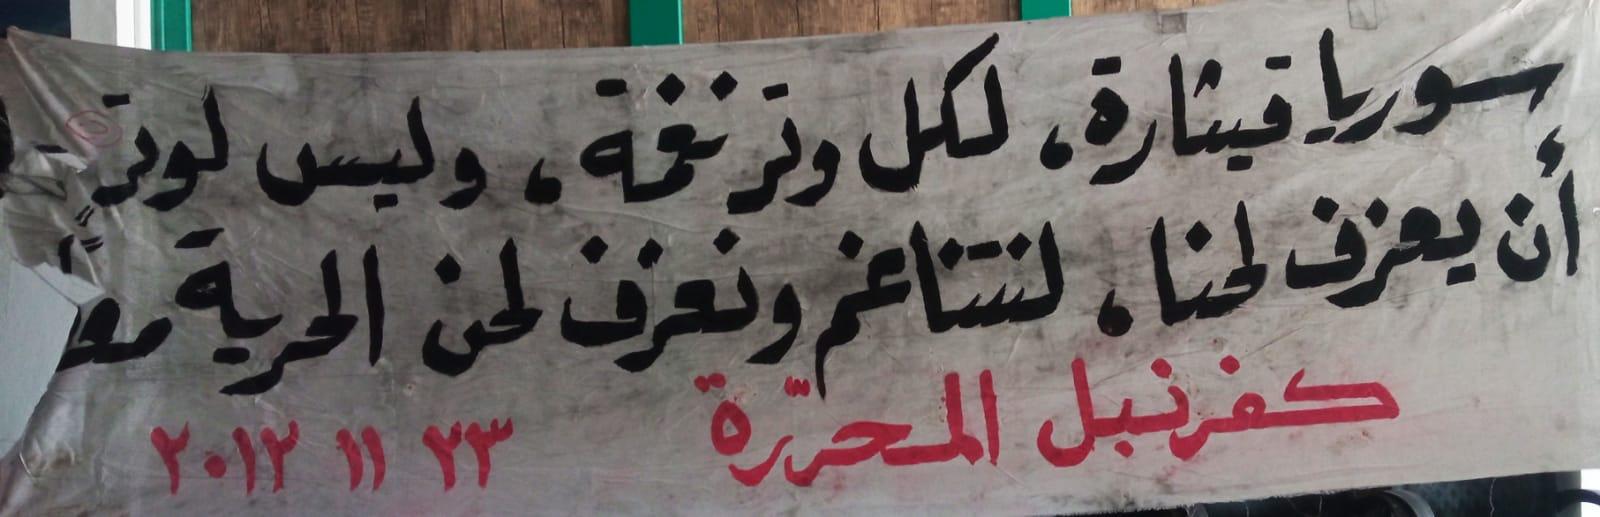 سوريا قيثارة، لكل وتر نغمة، وليس لوتر
أن يعزف لحنا، لنتناغم ونعزف لحن الحرية معاً
كفرنبل المحرّرة ٢٣ ١١ ٢٠١٢